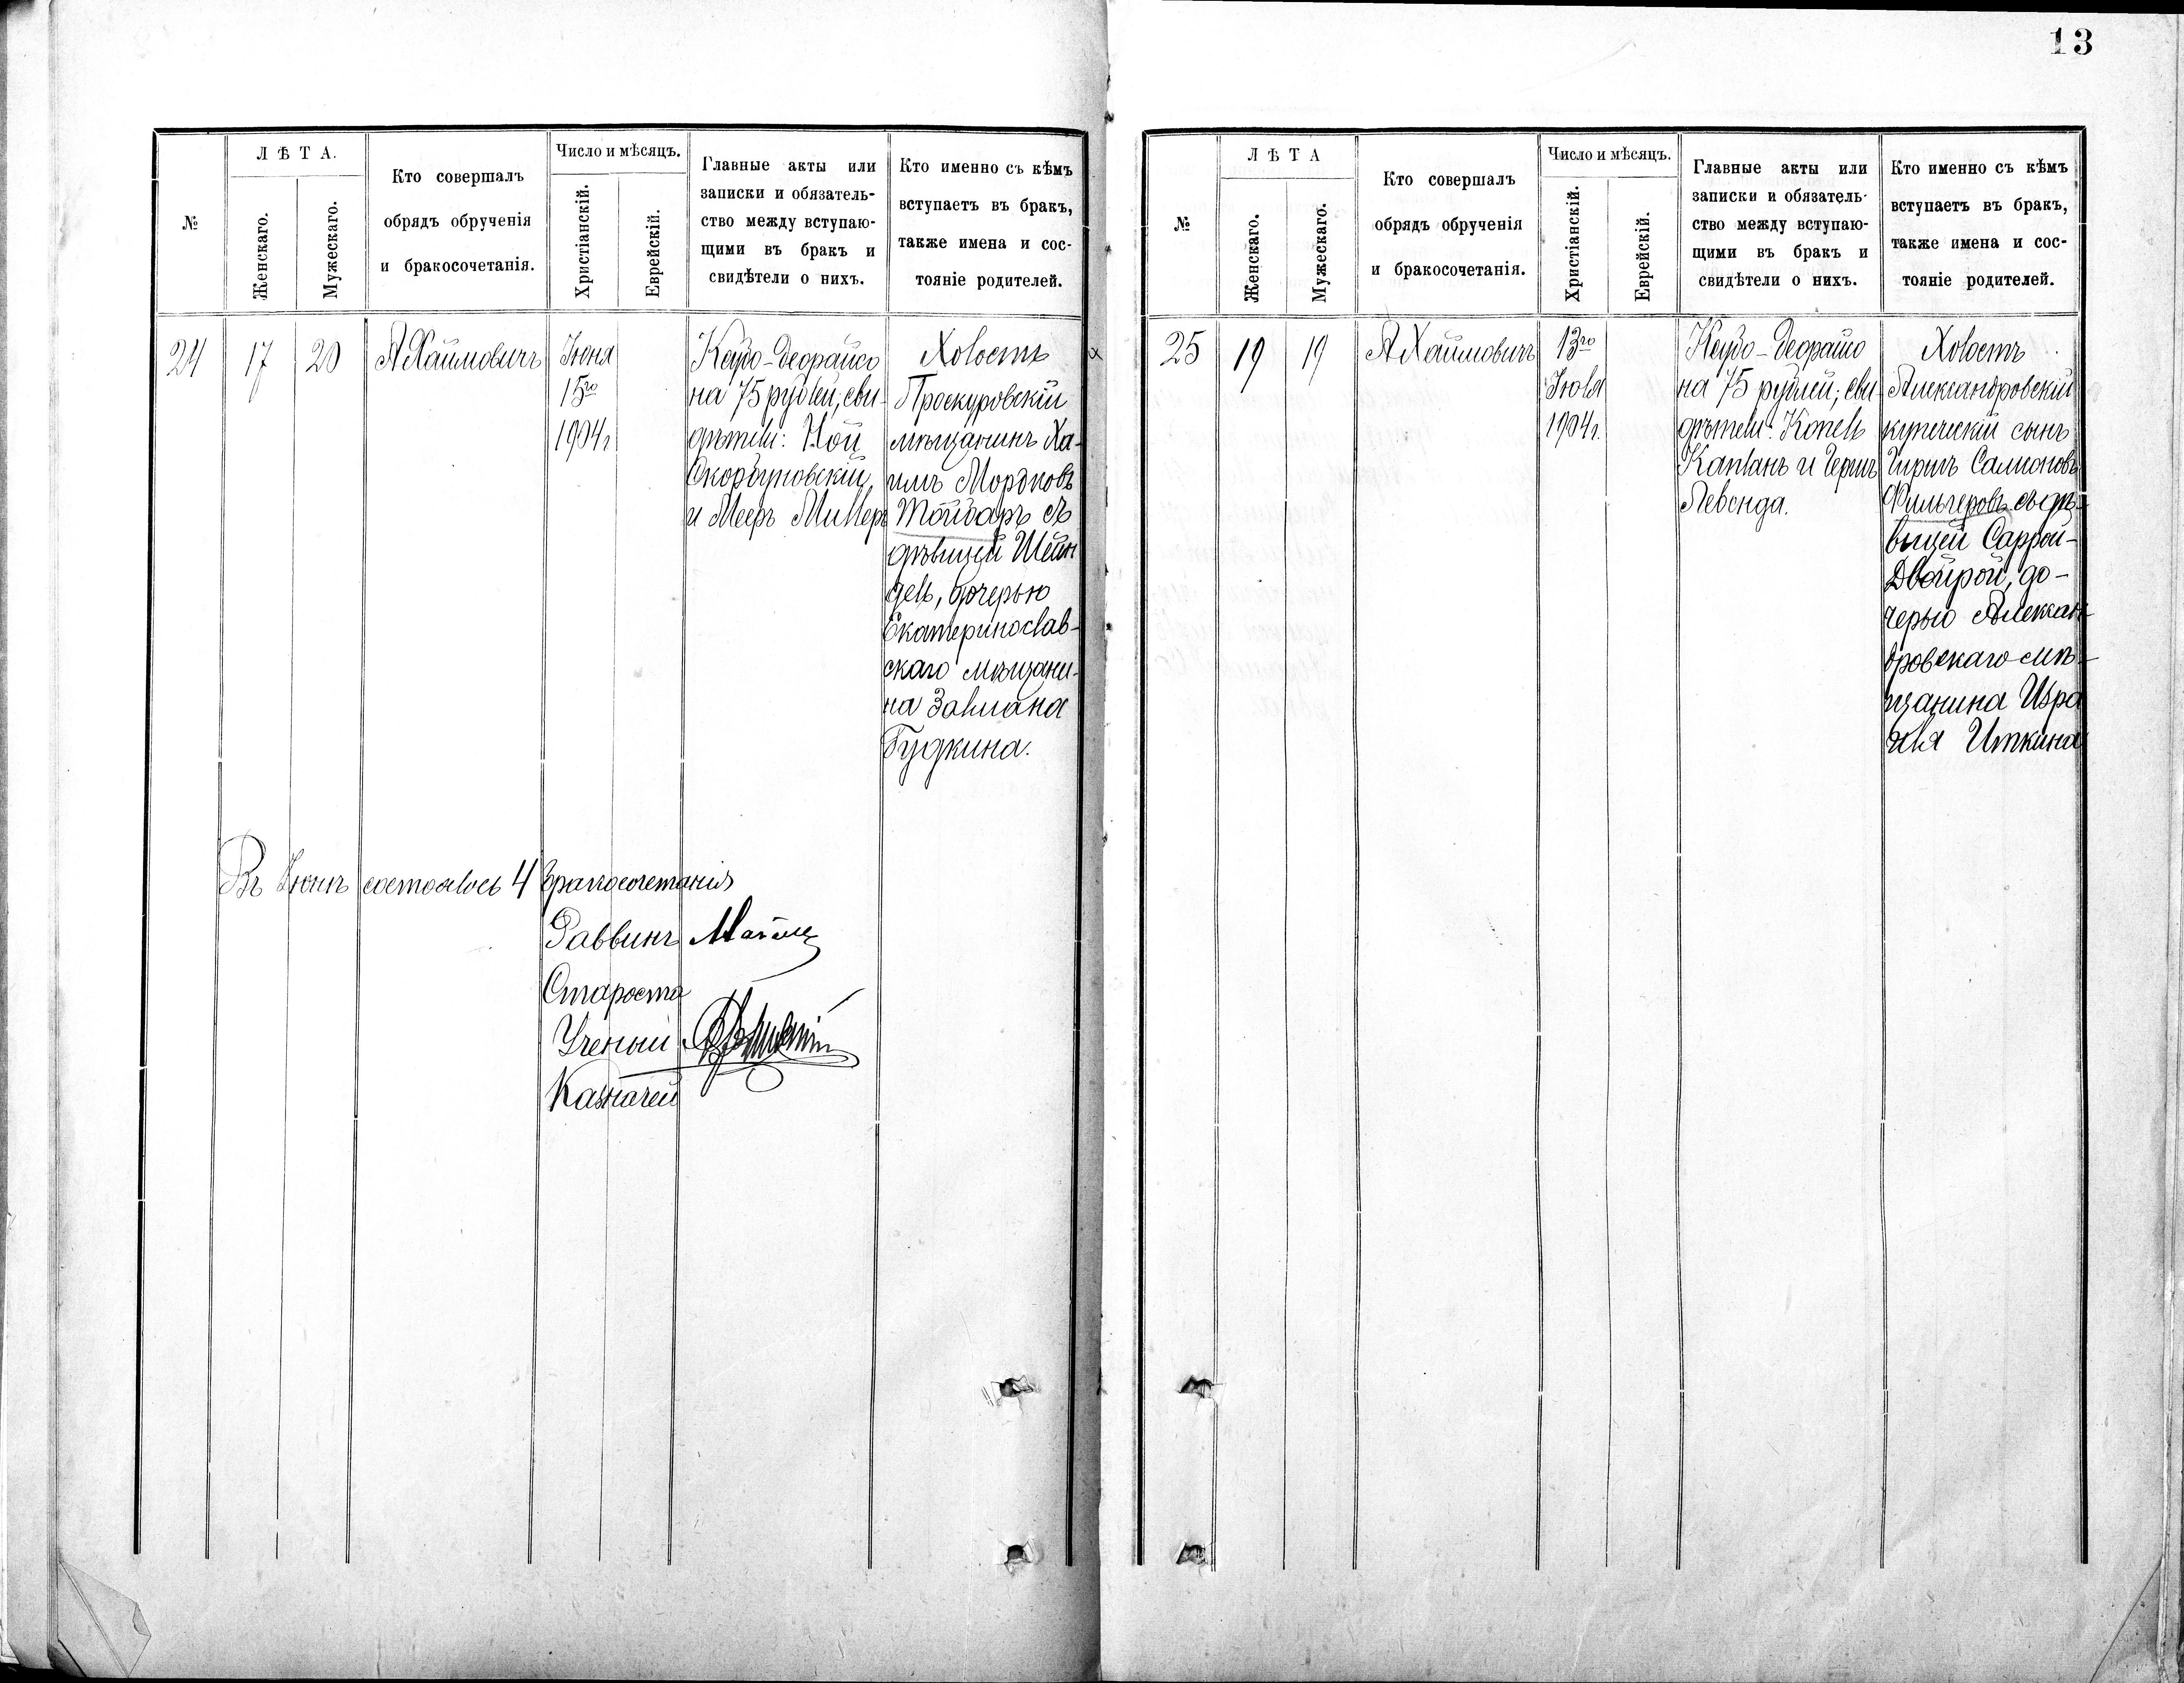 13
№
ЛѢТА.
Женскаго.
Мужескаго.
Кто совершалъ
обрядъ обрученія
и бракосочетанія.
Число и мѣсяцъ.
Христіанскій.
Еврейскій.
Главные акты или
записки и обязатель-
ство между вступаю-
щими въ бракъ и
свидѣтели о нихъ.
Кто именно съ кѣмъ
вступаетъ въ бракъ,
также имена и сос-
тояніе родителей.
24
17
20
А Хаимовичъ
Іюня
15го
1904г
Кейдо-Деорайсо
на 75 рублей, сви-
дѣтели: Ной
Скорбутовскій
и Мееръ Миллеръ
Холостъ
Проскуровскій
мѣщанинъ Ха-
имъ Мордковъ
Тойбаръ съ
дѣвицей Шейн
дель, дочерью
Екатеринослав-
скаго мѣщани-
на Залмана
Гудкина.
Въ Іюнѣ состоялось 4 бракосочетанія
Раввинъ
Староста
Ученый
Казначей
№
ЛѢТА
Женскаго.
Мужескаго.
Кто совершалъ
обрядъ обрученія
и бракосочетанія.
Число и мѣсяцъ.
Христіанскій.
Еврейскій.
Главные акты или
записки и обязатель-
ство между вступаю-
щими въ бракъ и
свидѣтели о нихъ.
Кто именно съ кѣмъ
вступаетъ въ бракъ,
также имена и сос-
тояніе родителей.
25
19
19
А Хаимовичъ
13го
Іюля
1904г.
Кейдо-Деорайсо
на 75 рублей; сви-
дѣтели: Копель
Капланъ и Герш
Левенда.
Холостъ
Александровскій
купеческій сынъ
Гиршъ Салмоновъ
Фильгеровъ съ дѣ-
вицей Саррой-
Двойрой, до-
черью Алексан-
дровскаго мѣ-
щанина Изра
иля Иткина